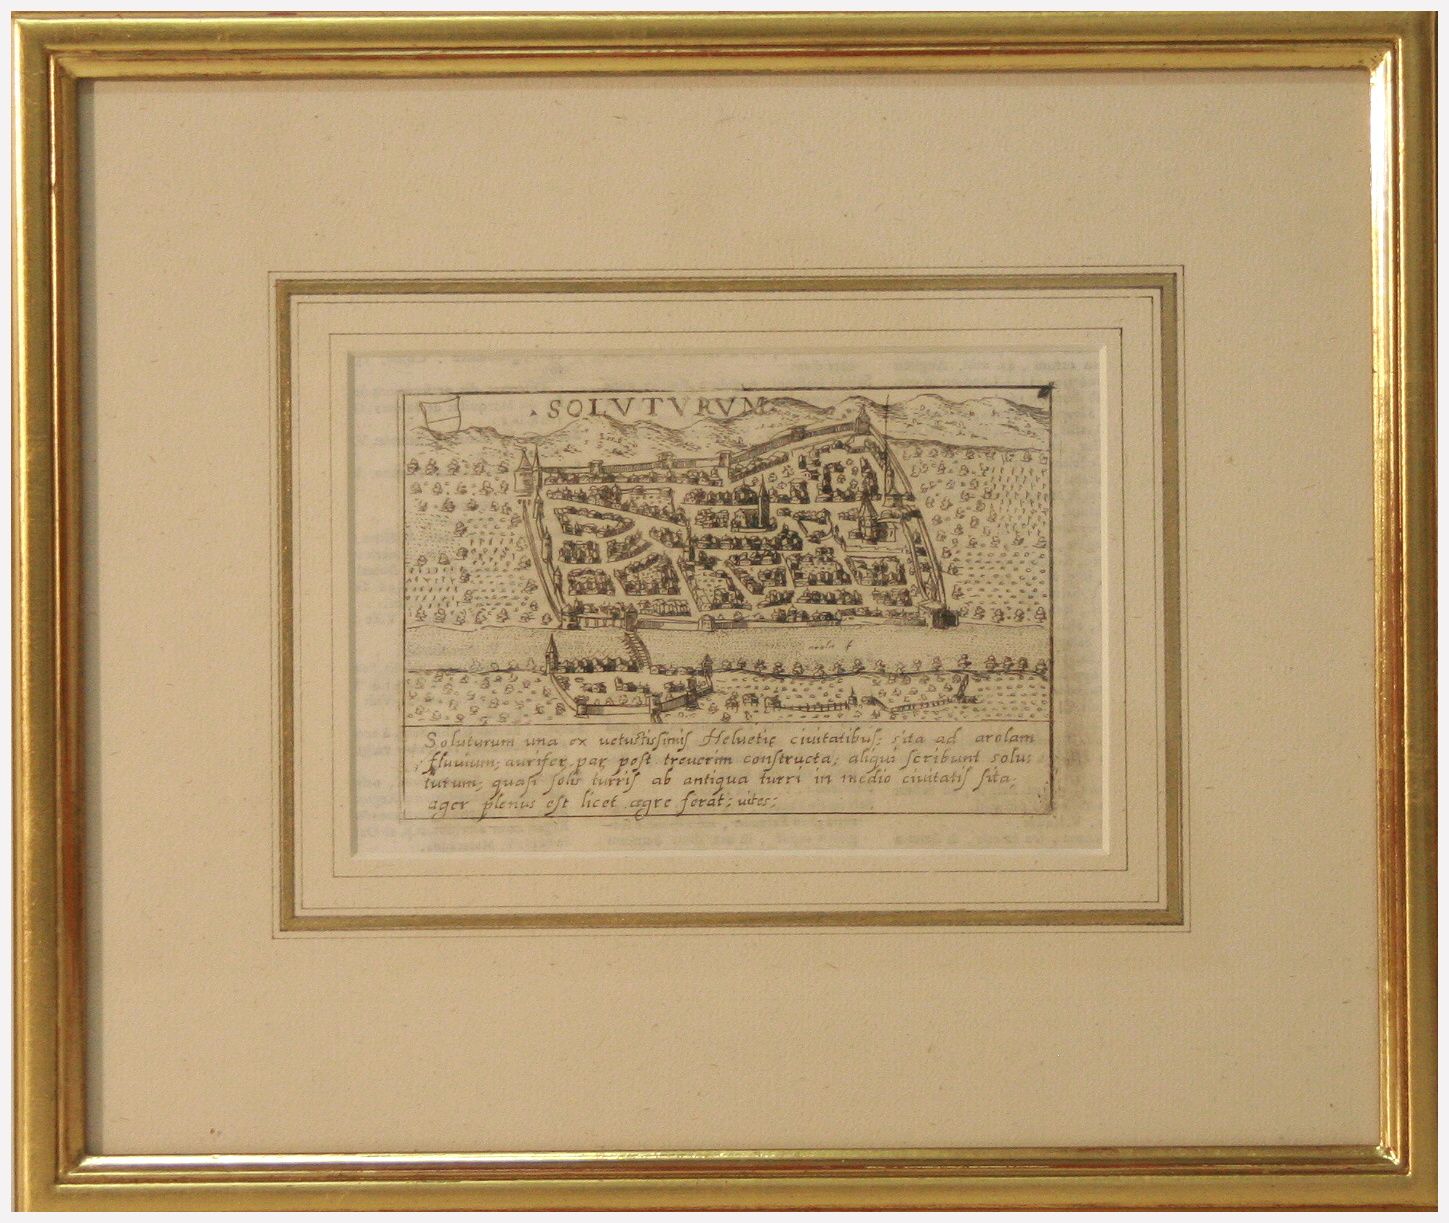 SOLVTVRVM
arola f
Soluturum una ex uetustissimis Helvetię ciuitatibus; sita ad arolam
fluuium; aurifer par post treuerim constructa; aliqui scribunt solus
turum; quasi solis turris ab antiqua turri in medio ciuitatis sita;
ager plenus est licet ægre ferat; uites;